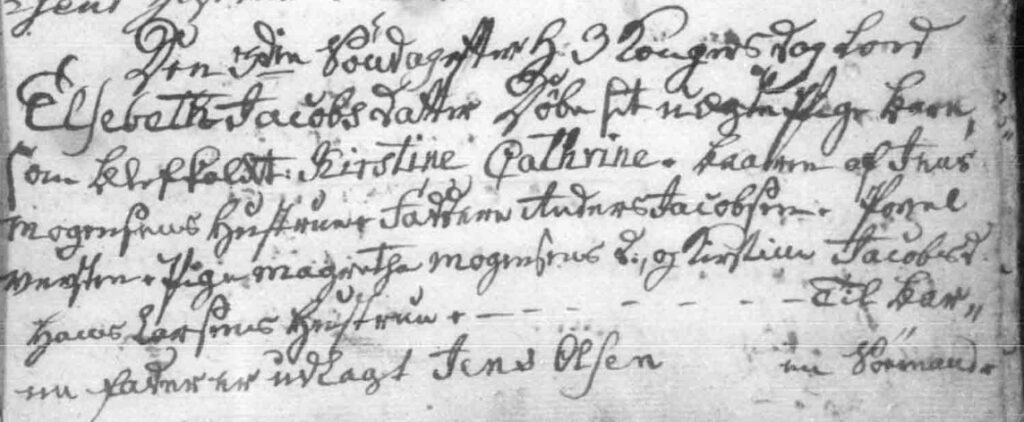 Den 3die Söndag efter H: 3 Kongers dag lood
Elsebeth Jacobs datter Döbe sit uægte Pige barn,
som blef kaldt: Kirstine Cathrine. baaren af Jens
Mogensens Hustrue. Faddere Anders Jacobsen. Povel
Pige Magrethe Mogensens D:, og Kirstine Jacobsd.
Hans Larsens Hustrue. - - - - - - Til bar„
ne fader er udlagt Jens Olsen en